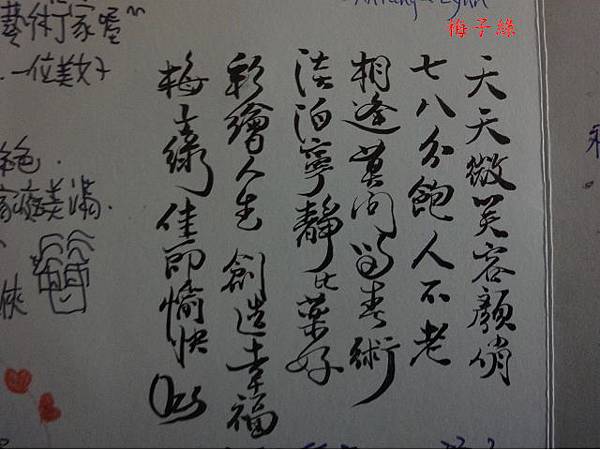 梅子綠
天天微笑容顏俏
七八分飽人不老
相逢莫問留春術
淡泊寧靜比藥好
彩繪人生 創造幸福
梅子綠 佳節愉快
藝術家喔^^
一位美女子
絕.
家庭美滿.
俠